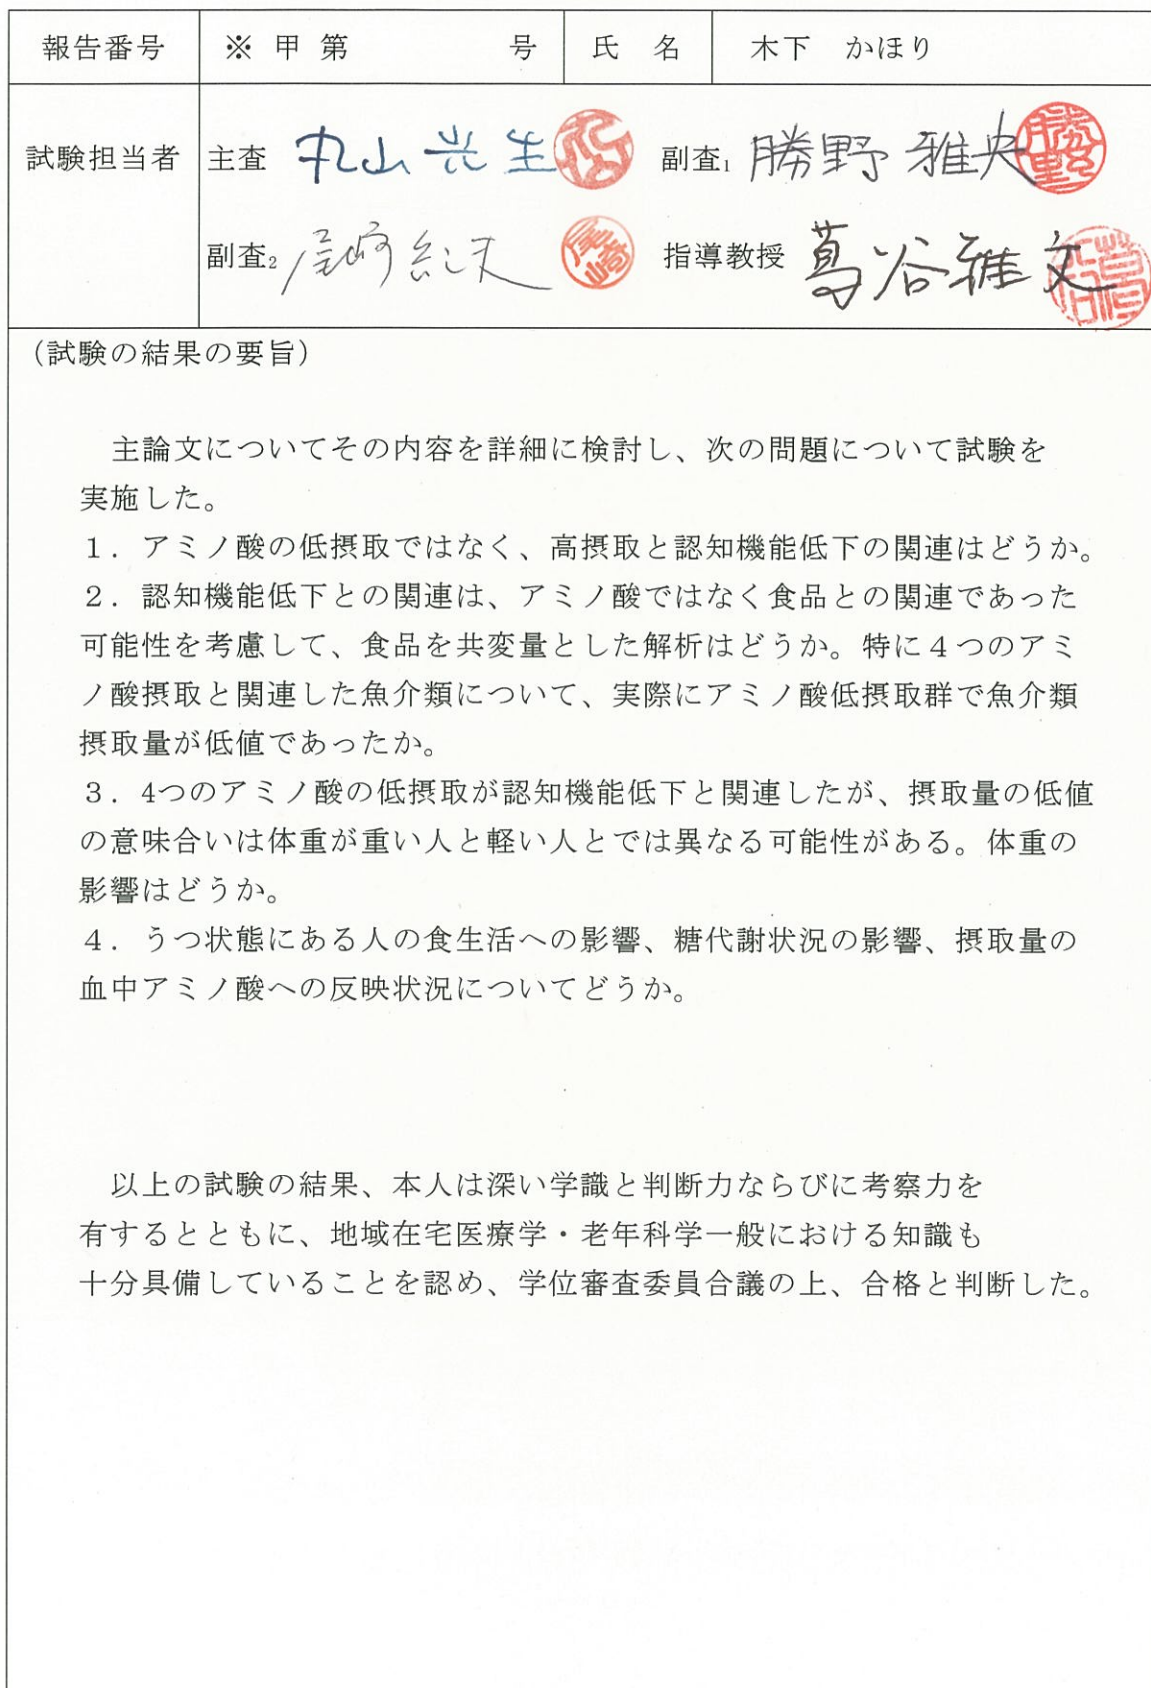 報告番号 ※ 甲 第 号 氏 名 木下 かほり
試験担当者 主査 丸山光生 副査1 勝野雅央 勝野
副査2 尾崎紀夫 尾崎 指導教授 葛谷雅文
（試験の結果の要旨）
主論文についてその内容を詳細に検討し、次の問題について試験を
実施した。
１．アミノ酸の低摂取ではなく、高摂取と認知機能低下の関連はどうか。
２．認知機能低下との関連は、アミノ酸ではなく食品との関連であった
可能性を考慮して、食品を共変量とした解析はどうか。特に４つのアミ
ノ酸摂取と関連した魚介類について、実際にアミノ酸低摂取群で魚介類
摂取量が低値であったか。
３．4つのアミノ酸の低摂取が認知機能低下と関連したが、摂取量の低値
の意味合いは体重が重い人と軽い人とでは異なる可能性がある。体重の
影響はどうか。
４．うつ状態にある人の食生活への影響、糖代謝状況の影響、摂取量の
血中アミノ酸への反映状況についてどうか。
以上の試験の結果、本人は深い学識と判断力ならびに考察力を
有するとともに、地域在宅医療学・老年科学一般における知識も
十分具備していることを認め、学位審査委員合議の上、合格と判断した。